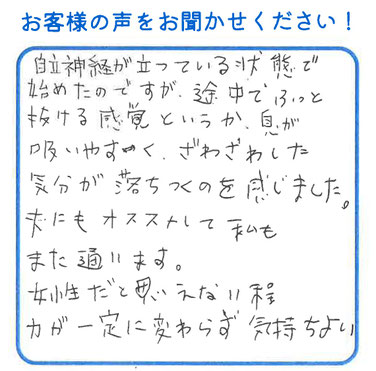 お客様の声をお聞かせください！
自立神経が立っている状態で
始めたのですが、途中でふっと
抜ける感覚というか、息が
吸いやすく、ざわざわした
気分が落ちつくのを感じました。
夫にもオススメして私も
また通います。
女性だと思いえない程
力が一定に変わらず気持ちよい